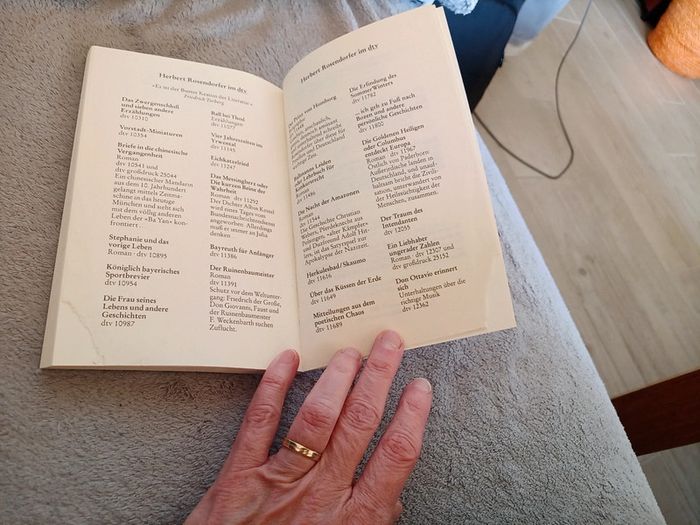 Herbert Rosendorfer im dtv
»Er ist der Buster Keaton der Literatur.«
Friedrich Torberg
Das Zwergenschloß
und sieben andere
Erzählungen
dtv 10310
Vorstadt-Miniaturen
dtv 10354
Briefe in die chinesische
Vergangenheit
Roman
dtv 10541 und
dtv großdruck 25044
Ein chinesischer Mandarin
aus dem 10. Jahrhundert
gelangt mittels Zeitma-
schine in das heutige
München und sieht sich
mit dem völlig anderen
Leben der »Ba Yan« kon-
frontiert .
Stephanie und das
vorige Leben
Roman · dtv 10895
Königlich bayerisches
Sportbrevier
dtv 10954
Die Frau seines
Lebens und andere
Geschichten
dtv 10987
Ball bei Thod
Erzählungen
dtv 11077
Vier Jahreszeiten im
Yrwental
dtv 11145
Eichkatzelried
dtv 11247
Das Messingherz oder
Die kurzen Beine der
Wahrheit
Roman · dtv 11292
Der Dichter Albin Kessel
wird eines Tages vom
Bundesnachrichtendienst
angeworben. Allerdings
muß er immer an Julia
denken
Bayreuth für Anfänger
dtv 11386
Der Ruinenbaumeister
Roman
dtv 11391
Schutz vor dem Weltunter-
gang: Friedrich der Große,
Don Giovanni, Faust und
der Ruinenbaumeister
F. Weckenbarth suchen
Zuflucht.
Herbert Rosendorfer im dtv
Der Prinz von Homburg
Biographie
Deutschland
Ballmanns Leiden
oder Lehrbuch für
Konkursrecht
Roman
dtv 11486
Die Nacht der Amazonen
Roman
dtv 11544
Die Geschichte Christian
Webers, Pferdeknecht aus
Polsingen, »alter Kämpfer«
und Duzfreund Adolf Hit-
lers, ist das Satyrspiel zur
Apokalypse der Nazizeit.
Herkulesbad/Skaumo
dtv 11616
Über das Küssen der Erde
dtv 11649
Mitteilungen aus dem
poetischen Chaos
dtv 11689
Die Erfindung des
SommerWinters
dtv 11782
... ich geh zu Fuß nach
Bozen und andere
persönliche Geschichten
dtv 11800
Die Goldenen Heiligen
oder Columbus
entdeckt Europa
Roman · dtv 11967
Östlich von Paderborn
Außerirdische landen in
Deutschland, und unauf-
haltsam bricht die Zivili-
sation, unterwandert von
der Heilssüchtigkeit der
Menschen, zusammen.
Der Traum des
Intendanten
dtv 12055
Ein Liebhaber
ungerader Zahlen
Roman · dtv 12307 und
dtv großdruck 25152
Don Ottavio erinnert
sich
Unterhaltungen über die
richtige Musik
dtv 12362